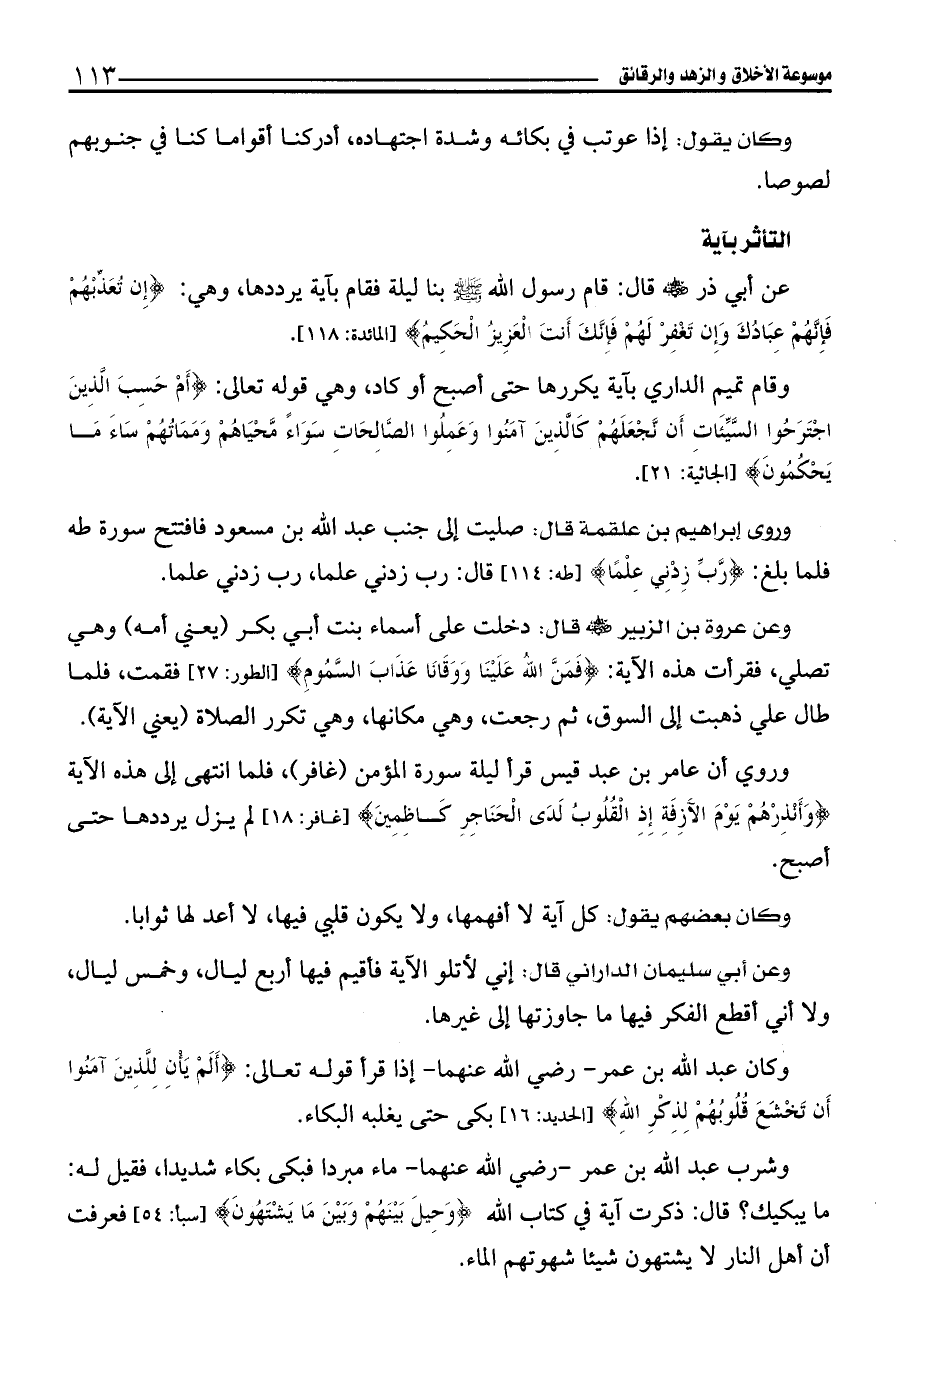 موسوعة الأخلاق والزهد والرقائق ١١٣
وكان يقول: إذا عوتب في بكائه وشدة اجتهاده، أدركنا أقواما كنا في جنوبهم
لصوصا.
التأثر بآية
عن أبي ذر ﷺ قال: قام رسول الله ﷺ بنا ليلة فقام بآية يرددها، وهي: ﴿إِن تُعَذِّبْهُمْ
فَإِنَّهُمْ عِبَادُكَ وَإِن تَغْفِرْ لَهُمْ فَإِنَّكَ أَنتَ الْعَزِيزُ الْحَكِيمُ﴾ [المائدة: ١١٨].
وقام تميم الداري بآية يكررها حتى أصبح أو كاد، وهي قوله تعالى: ﴿أَمْ حَسِبَ الَّذِينَ
اجْتَرَحُوا السَّيِّئَاتِ أَن نَّجْعَلَهُمْ كَالَّذِينَ آمَنُوا وَعَمِلُوا الصَّالِحَاتِ سَوَاءً مَّحْيَاهُمْ وَمَمَاتُهُمْ سَاءَ مَا
يَحْكُمُونَ﴾ [الجاثية: ٢١].
وروى إبراهيم بن علقمة قال: صليت إلى جنب عبد الله بن مسعود فافتتح سورة طه
فلما بلغ: ﴿رَّبِّ زِدْنِي عِلْمًا﴾ [طه: ١١٤] قال: رب زدني علما، رب زدني علما.
وعن عروة بن الزبير قال: دخلت على أسماء بنت أبي بكر (يعني أمه) وهي
تصلي، فقرأت هذه الآية: ﴿فَمَنَّ اللهُ عَلَيْنَا وَوَقَانَا عَذَابَ السَّمُومِ﴾ [الطور: ٢٧] فقمت، فلما
طال علي ذهبت إلى السوق، ثم رجعت، وهي مكانها، وهي تكرر الصلاة (يعني الآية).
وروي أن عامر بن عبد قيس قرأ ليلة سورة المؤمن (غافر)، فلما انتهى إلى هذه الآية
﴿وَأَنْذِرْهُمْ يَوْمَ الآزِفَةِ إِذِ الْقُلُوبُ لَدَى الْحَنَاجِرِ كَاظِمِينَ﴾ [غافر: ١٨] لم يزل يرددها حتى
أصبح.
وكان بعضهم يقول: كل آية لا أفهمها، ولا يكون قلبي فيها، لا أعد لها ثوابا.
وعن أبي سليمان الداراني قال: إني لأتلو الآية فأقيم فيها أربع ليال، وخمس ليال،
ولا أني أقطع الفكر فيها ما جاوزتها إلى غيرها.
وكان عبد الله بن عمر– رضي الله عنهما– إذا قرأ قوله تعالى: ﴿أَلَمْ يَأْنِ لِلَّذِينَ آمَنُوا
أَن تَخْشَعَ قُلُوبُهُمْ لِذِكْرِ اللهِ﴾ [الحديد: ١٦] بكى حتى يغلبه البكاء.
وشرب عبد الله بن عمر –رضي الله عنهما– ماء مبردا فبكى بكاء شديدا، فقيل له:
ما يبكيك؟ قال: ذكرت آية في كتاب الله ﴿وَحِيلَ بَيْنَهُمْ وَبَيْنَ مَا يَشْتَهُونَ﴾ [سبأ: ٥٤] فعرفت
أن أهل النار لا يشتهون شيئا شهوتهم الماء.